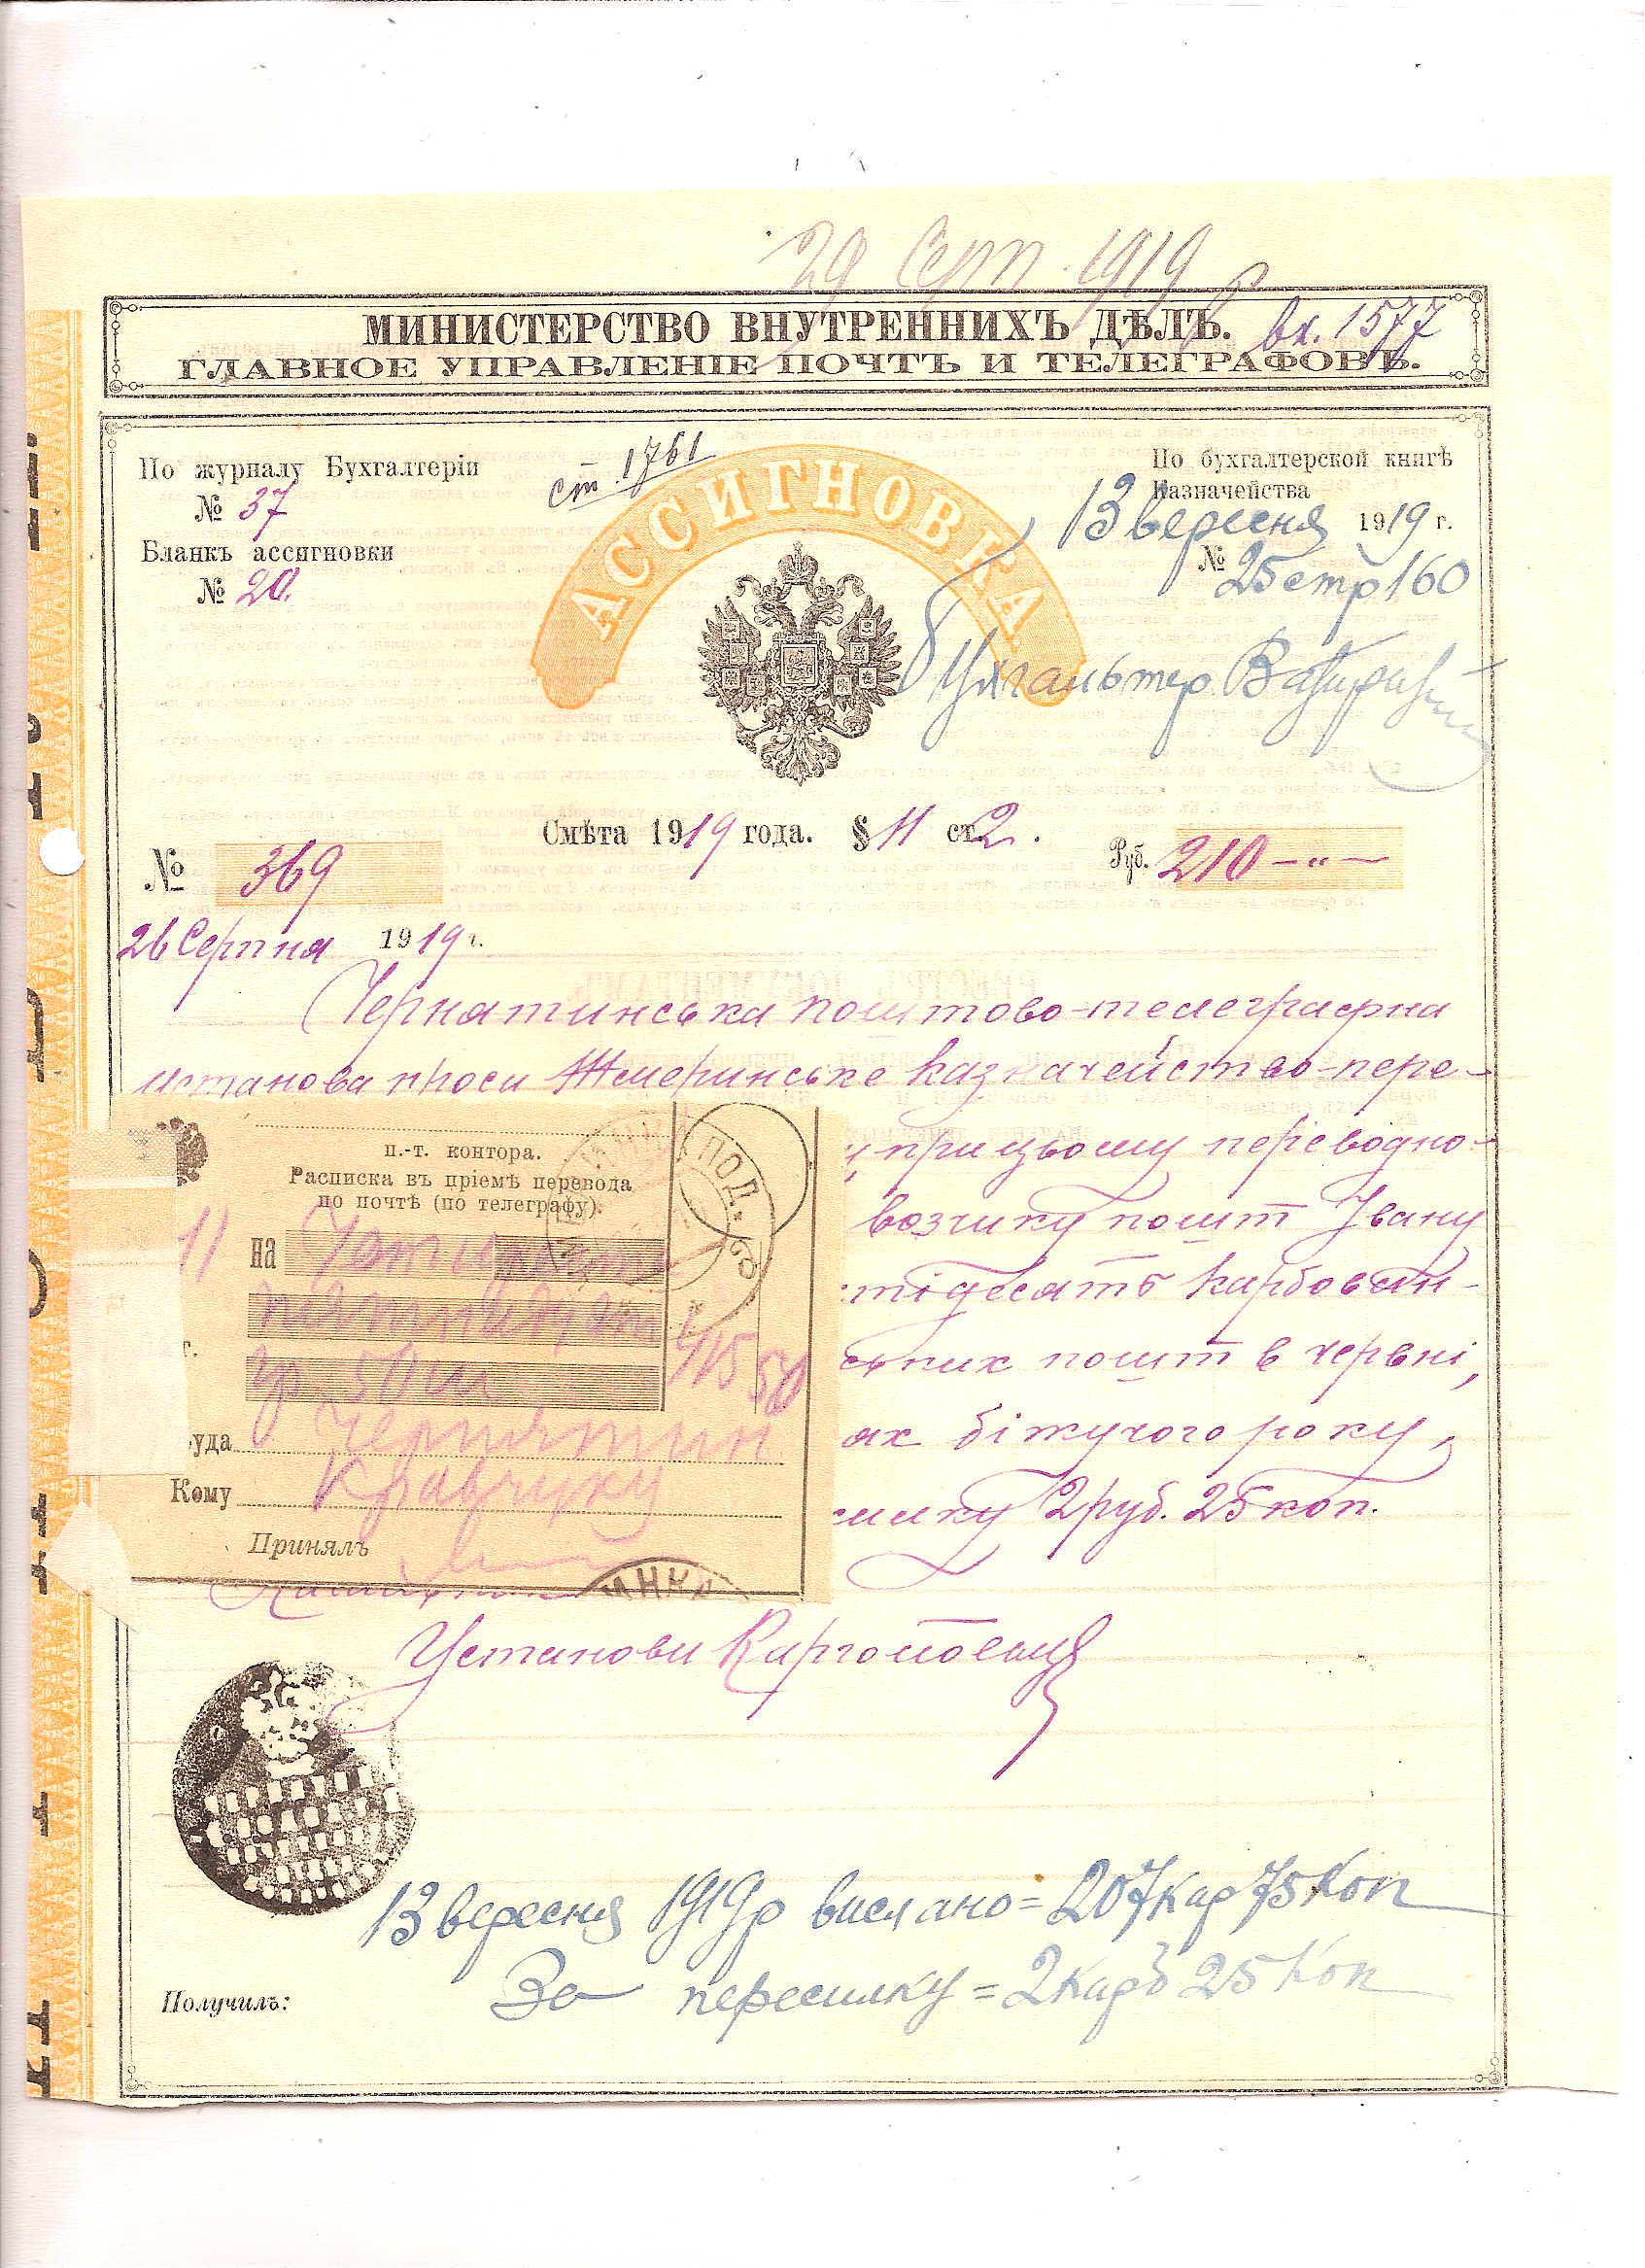 29 Серп. 1919 р
МИНИСТЕРСТВО ВНУТРЕННИХЪ ДѢЛЪ.
вх. 1577
ГЛАВНОЕ УПРАВЛЕНІЕ ПОЧТЪ И ТЕЛЕГРАФОВЪ.
По журналу Бухгалтеріи
№ 37
Бланкъ ассигновки
№ 20.
ст. 1761
АССИГНОВКА
По бухгалтерской книгѣ
Казначейства
13 вересня 1919 г.
№ 25 стр 160
Бухгальтер
Смѣта 1919 года. § 11 ст. 2.
№ 369
Руб. 210 — „ —
26 Серпня 1919 г.
Чернятинська поштово-телеграфна
установа проси Жмеринське Казначейство пере-
при цьому переводно-
возчику пошт Івану
тідесять карбован-
ських пошт в червні,
ях біжучого року,
силку 2 руб. 25 коп.
п.-т. контора.
Расписка въ пріемѣ перевода
по почтѣ (по телеграфу).
на Четыреста
пятнадцат
р 50 к
415 50
уда Чернятин
Кому Кравчуку
Принялъ
ПОД.
ИНКА
Установи
13 вересня 1919 р вислано = 207 кар 75 коп
За пересилку = 2 карб 25 коп
Получилъ: